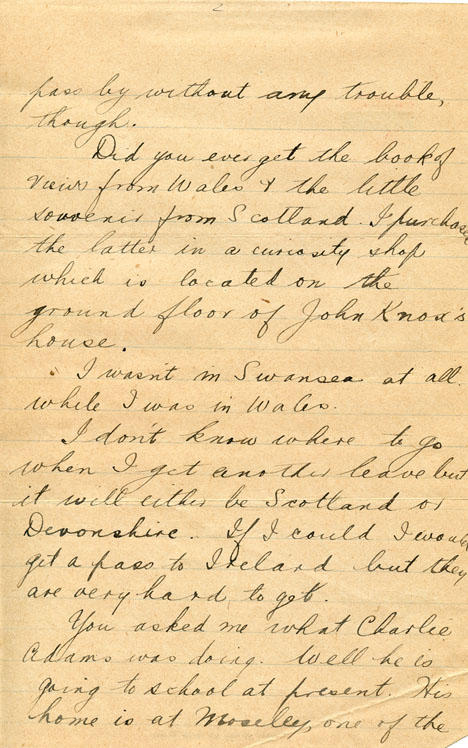 2
pass by without any trouble,
though.
Did you ever get the book of
views from Wales & the little
souvenir from Scotland. I purchased
the latter in a curiosity shop
which is located on the
ground floor of John Knox's
house.
I wasn't in Swansea at all
while I was in Wales.
I don't know where to go
when I get another leave but
it will either be Scotland or
Devonshire. If I could I would
get a pass to Ireland but they
are very hard to get.
You asked me what Charlie
Adams was doing. Well he is
going to school at present. His
home is at Moseley, one of the